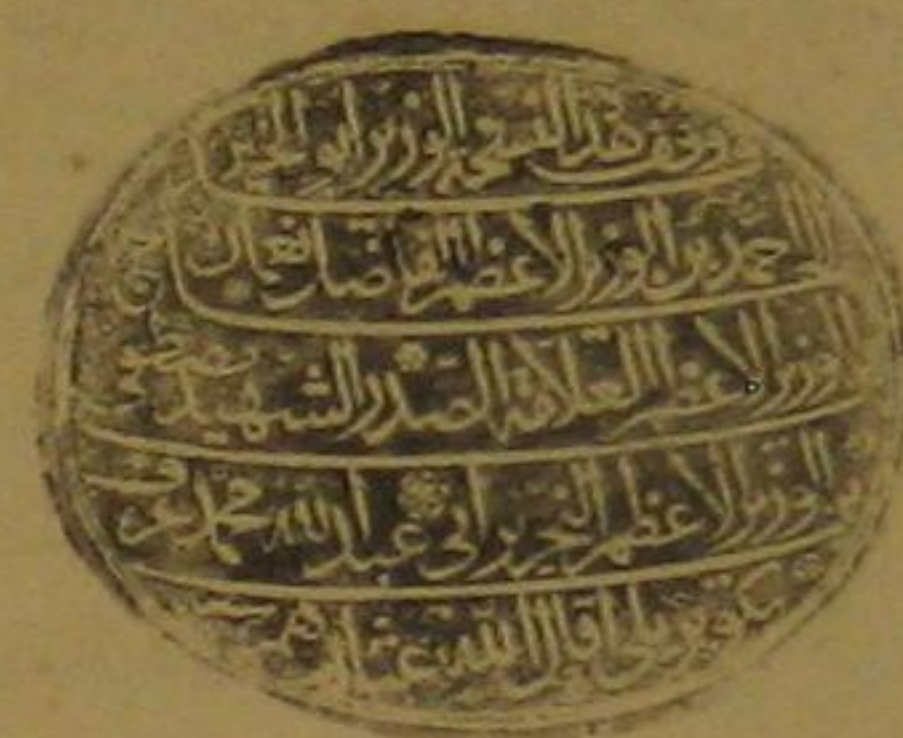 وقف هذه النسخة الوزير ابو الخير
احمد بن الوزير الاعظم الفاضل نعمان بن
الوزير الاعظم العلامة الصدر الشهيد مصطفى
بن الوزير الاعظم النحرير ابى عبد الله محمد عرف
بكوبريلى اقال الله عثارهم